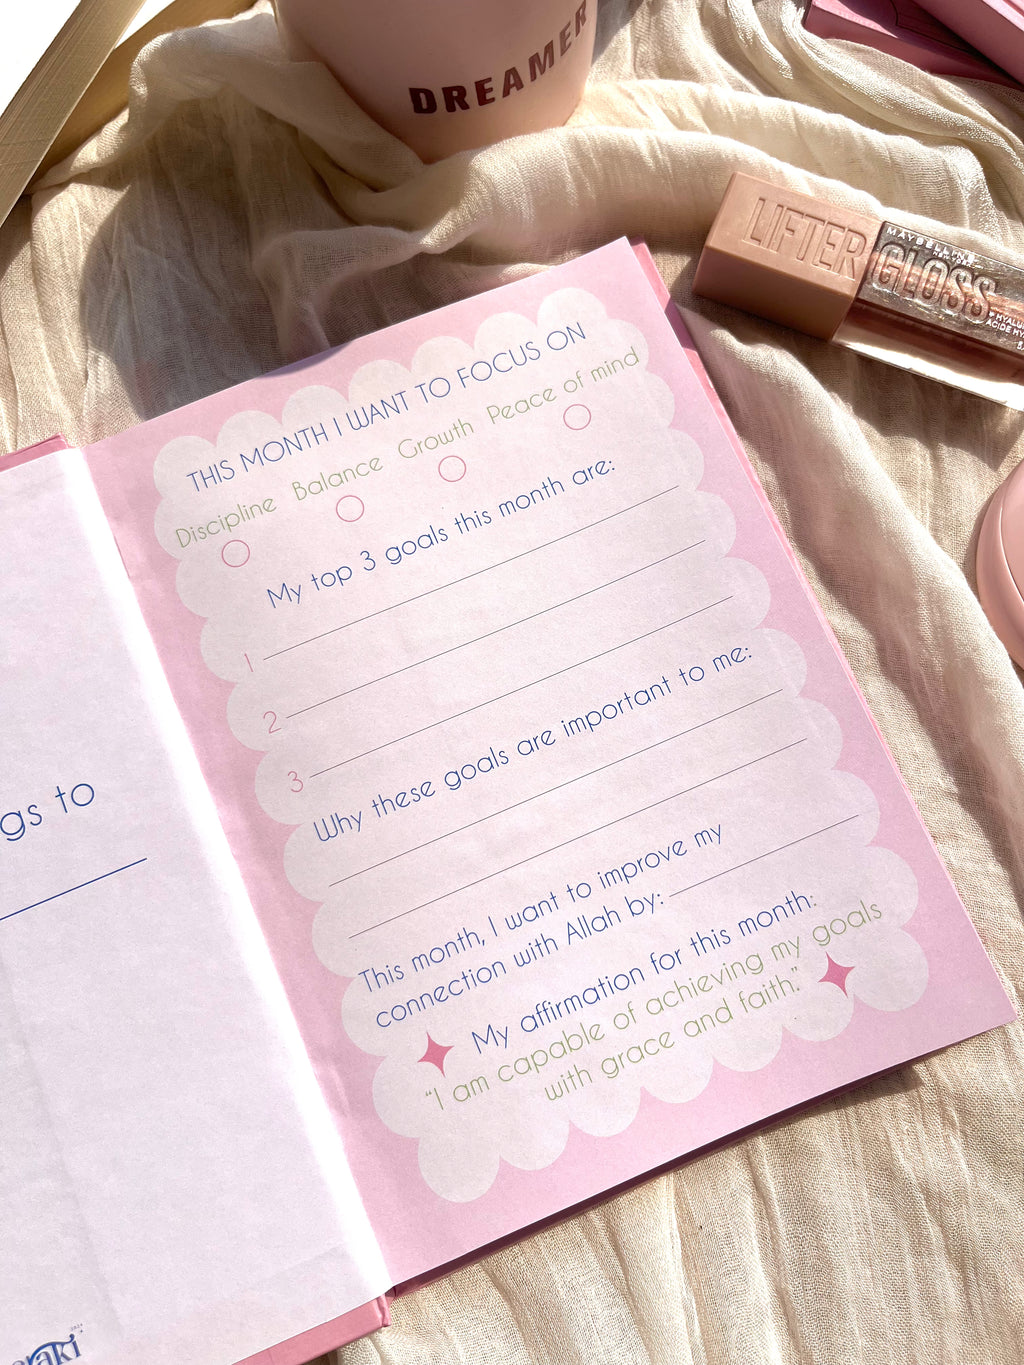 DREAMER
LIFTER
GLOSS
MAYBELLINE
NEW YORK
THIS MONTH I WANT TO FOCUS ON
Discipline Balance Growth Peace of mind
My top 3 goals this month are:
1
2
3
Why these goals are important to me:
This month, I want to improve my
connection with Allah by:
My affirmation for this month:
"I am capable of achieving my goals
with grace and faith."
gs to